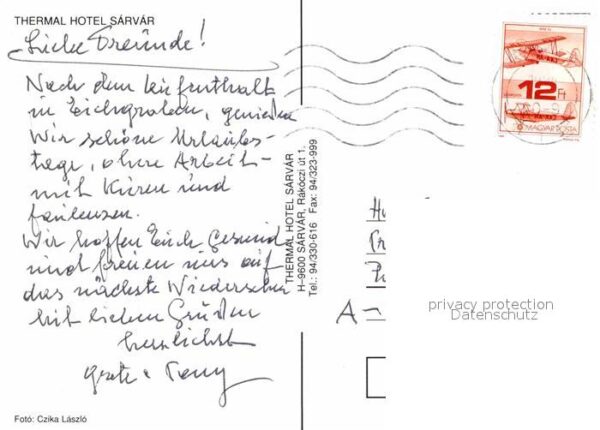 THERMAL HOTEL SÁRVÁR
Liebe Freunde!
Nach dem Aufenthalt
in Eichgraben, genießen
Wir schöne Urlaubs-
tage, ohne Arbeit -
mit Kuren und
faulenzen.
Wir hoffen Euch Gesund
und freuen uns auf
das nächste Wiedersehen
Mit lieben Grüßen
herzlichst
Grete + Tony
Foto: Czika László
THERMAL HOTEL SÁRVÁR
H-9600 SÁRVÁR, Rákóczi út 1.
Tel.: 94/330-616 Fax: 94/323-999
12 Ft
MAGYAR POSTA
A-
privacy protection
Datenschutz